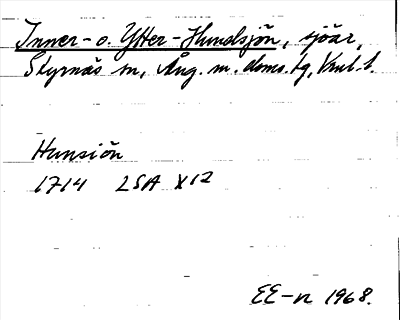 Inner- o. Ytter-Hundsjön, sjöar,
Skyrnäs sn, Ång. m. doms. tg,
Hunsiön
1714 LSA X12
EE-n 1968.